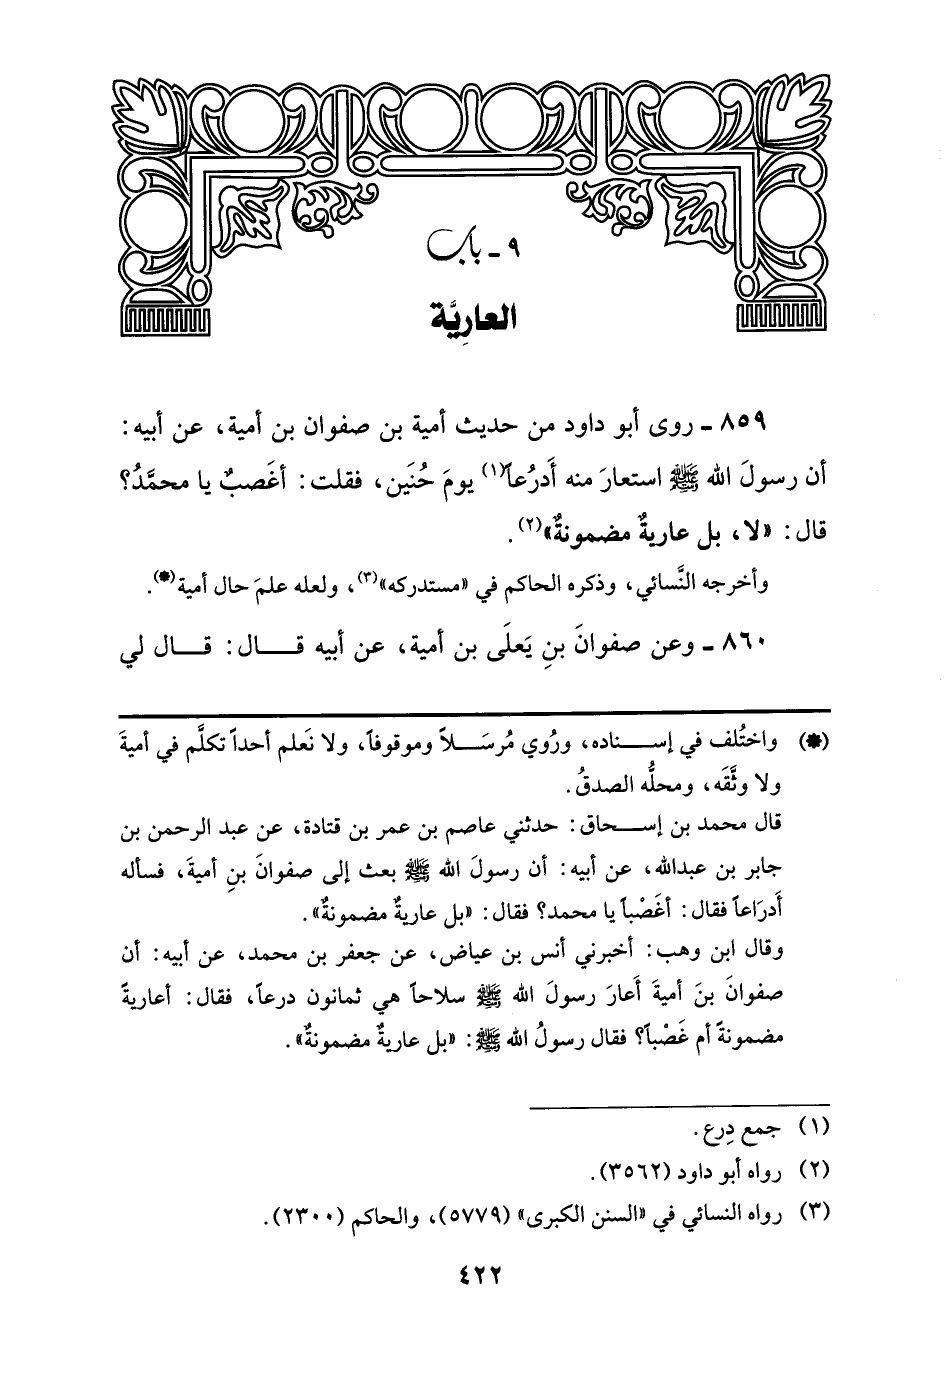 ٩ - باب
العاريَّة
٨٥٩ - روى أبو داود من حديث أمية بن صفوان بن أمية، عن أبيه:
أن رسولَ الله ﷺ استعارَ منه أَدرُعاً(١) يومَ حُنَين، فقلت: أغَصبٌ يا محمَّدُ؟
قال: «لا، بل عاريةٌ مضمونةٌ»(٢).
وأخرجه النَّسائي، وذكره الحاكم في «مستدركه»(٣)، ولعله علمَ حال أمية(*).
٨٦٠ - وعن صفوانَ بنِ يَعلَى بن أمية، عن أبيه قـــال: قـــال لي
(*) واختُلف في إســـناده، ورُوي مُرسَـــلاً وموقوفاً، ولا نَعلم أحداً تكلَّم في أميةَ
ولا وثَّقَه، ومحلُّه الصدقُ.
قال محمد بن إســـحاق: حدثني عاصم بن عمر بن قتادة، عن عبد الرحمن بن
جابر بن عبدالله، عن أبيه: أن رسولَ الله ﷺ بعث إلى صفوانَ بنِ أميةَ، فسأله
أَدرَاعاً فقال: أغَصْباً يا محمد؟ فقال: «بل عاريةٌ مضمونةٌ».
وقال ابن وهب: أخبرني أنس بن عياض، عن جعفر بن محمد، عن أبيه: أن
صفوانَ بنَ أميةَ أَعارَ رسولَ الله ﷺ سلاحاً هي ثمانون درعاً، فقال: أعاريةً
مضمونةً أم غَصْباً؟ فقال رسولُ الله ﷺ: «بل عاريةٌ مضمونةٌ».
(١) جمع دِرع.
(٢) رواه أبو داود (٣٥٦٢).
(٣) رواه النسائي في «السنن الكبرى» (٥٧٧٩)، والحاكم (٢٣٠٠).
٤٢٢